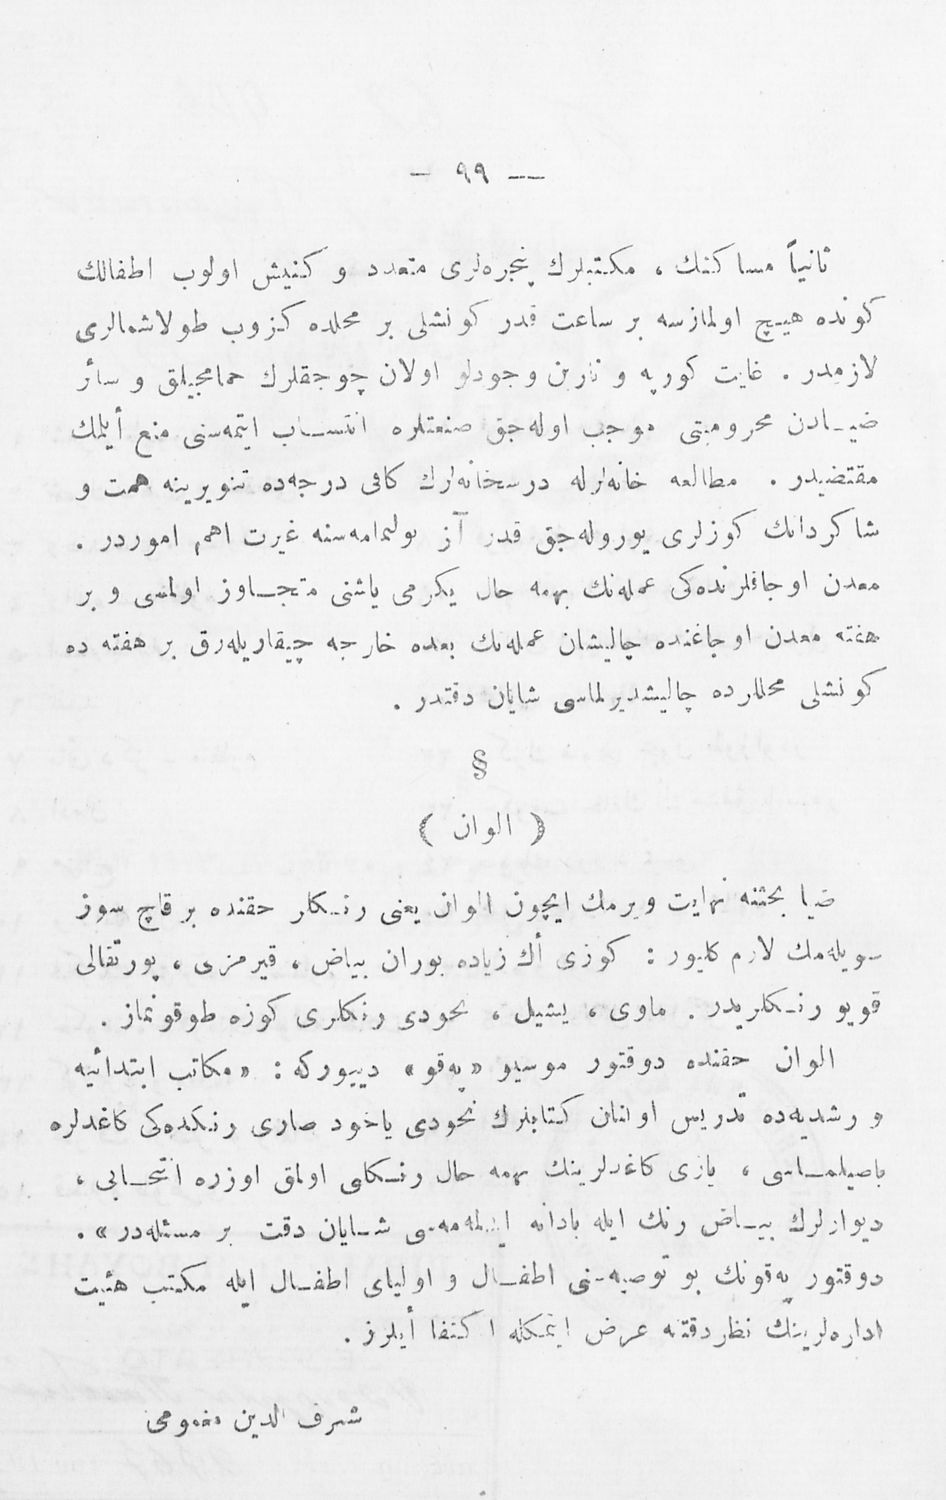 — ٩٩ —
ثانياً مساكنك ، مكتبلرك پنجره‌لری متعدد و كنيش اولوب اطفالك
كونده هيچ اولمازسه بر ساعت قدر كونشلی بر محلده كزوب طولاشمالری
لازمدر . غايت كورپه و نارين وجودلو اولان چوجقلرك حمامجيلق و سأر
ضيادن محروميتی موجب اوله‌جق صنعتلره انتساب ايتمه‌سنی منع أيلمك
مقتضيدر . مطالعه خانه‌لرله درسخانه‌لرك كافی درجه‌ده تنويرينه همت و
شاكردانك كوزلری يوروله‌جق قدر آز بولنمامه‌سنه غيرت اهم اموردر .
معدن اوجاقلرنده‌كی عمله‌نك بهمه حال يكرمی ياشنی متجاوز اولمسی و بر
هفته معدن اوجاغنده چاليشان عمله‌نك بعده خارجه چيقاريله‌رق بر هفته ده
كونشلی محللرده چاليشديرلماسی شايان دقتدر .
§
( الوان )
ضيا بحثنه نهايت ويرمك ايچون الوان يعنی رنكلر حقنده بر قاچ سوز
سويله‌مك لازم كليور : كوزی أك زياده يوران بياض ، قيرمزی ، پورتقالی
قويو رنكلريدر . ماوی ، يشيل ، نخودی رنكلری كوزه طوقونماز .
الوان حقنده دوقتور موسيو «په‌قو» دييوركه : «مكاتب ابتدائيه
و رشديه‌ده تدريس اولنان كتابلرك نخودی ياخود صاری رنكده‌كی كاغدلره
باصيلماسی ، يازی كاغدلرينك بهمه حال رنكلی اولمق اوزره انتخابی ،
ديوارلرك بياض رنك ايله بادانه ايدلمه‌مسی شايان دقت بر مسئله‌در» .
دوقتور په‌قونك بو توصيه‌سنی اطفال و اوليای اطفال ايله مكتب هئيت
اداره‌لرينك نظردقتنه عرض ايتمكله اكتفا أيلرز .
شرف الدين مغمومی